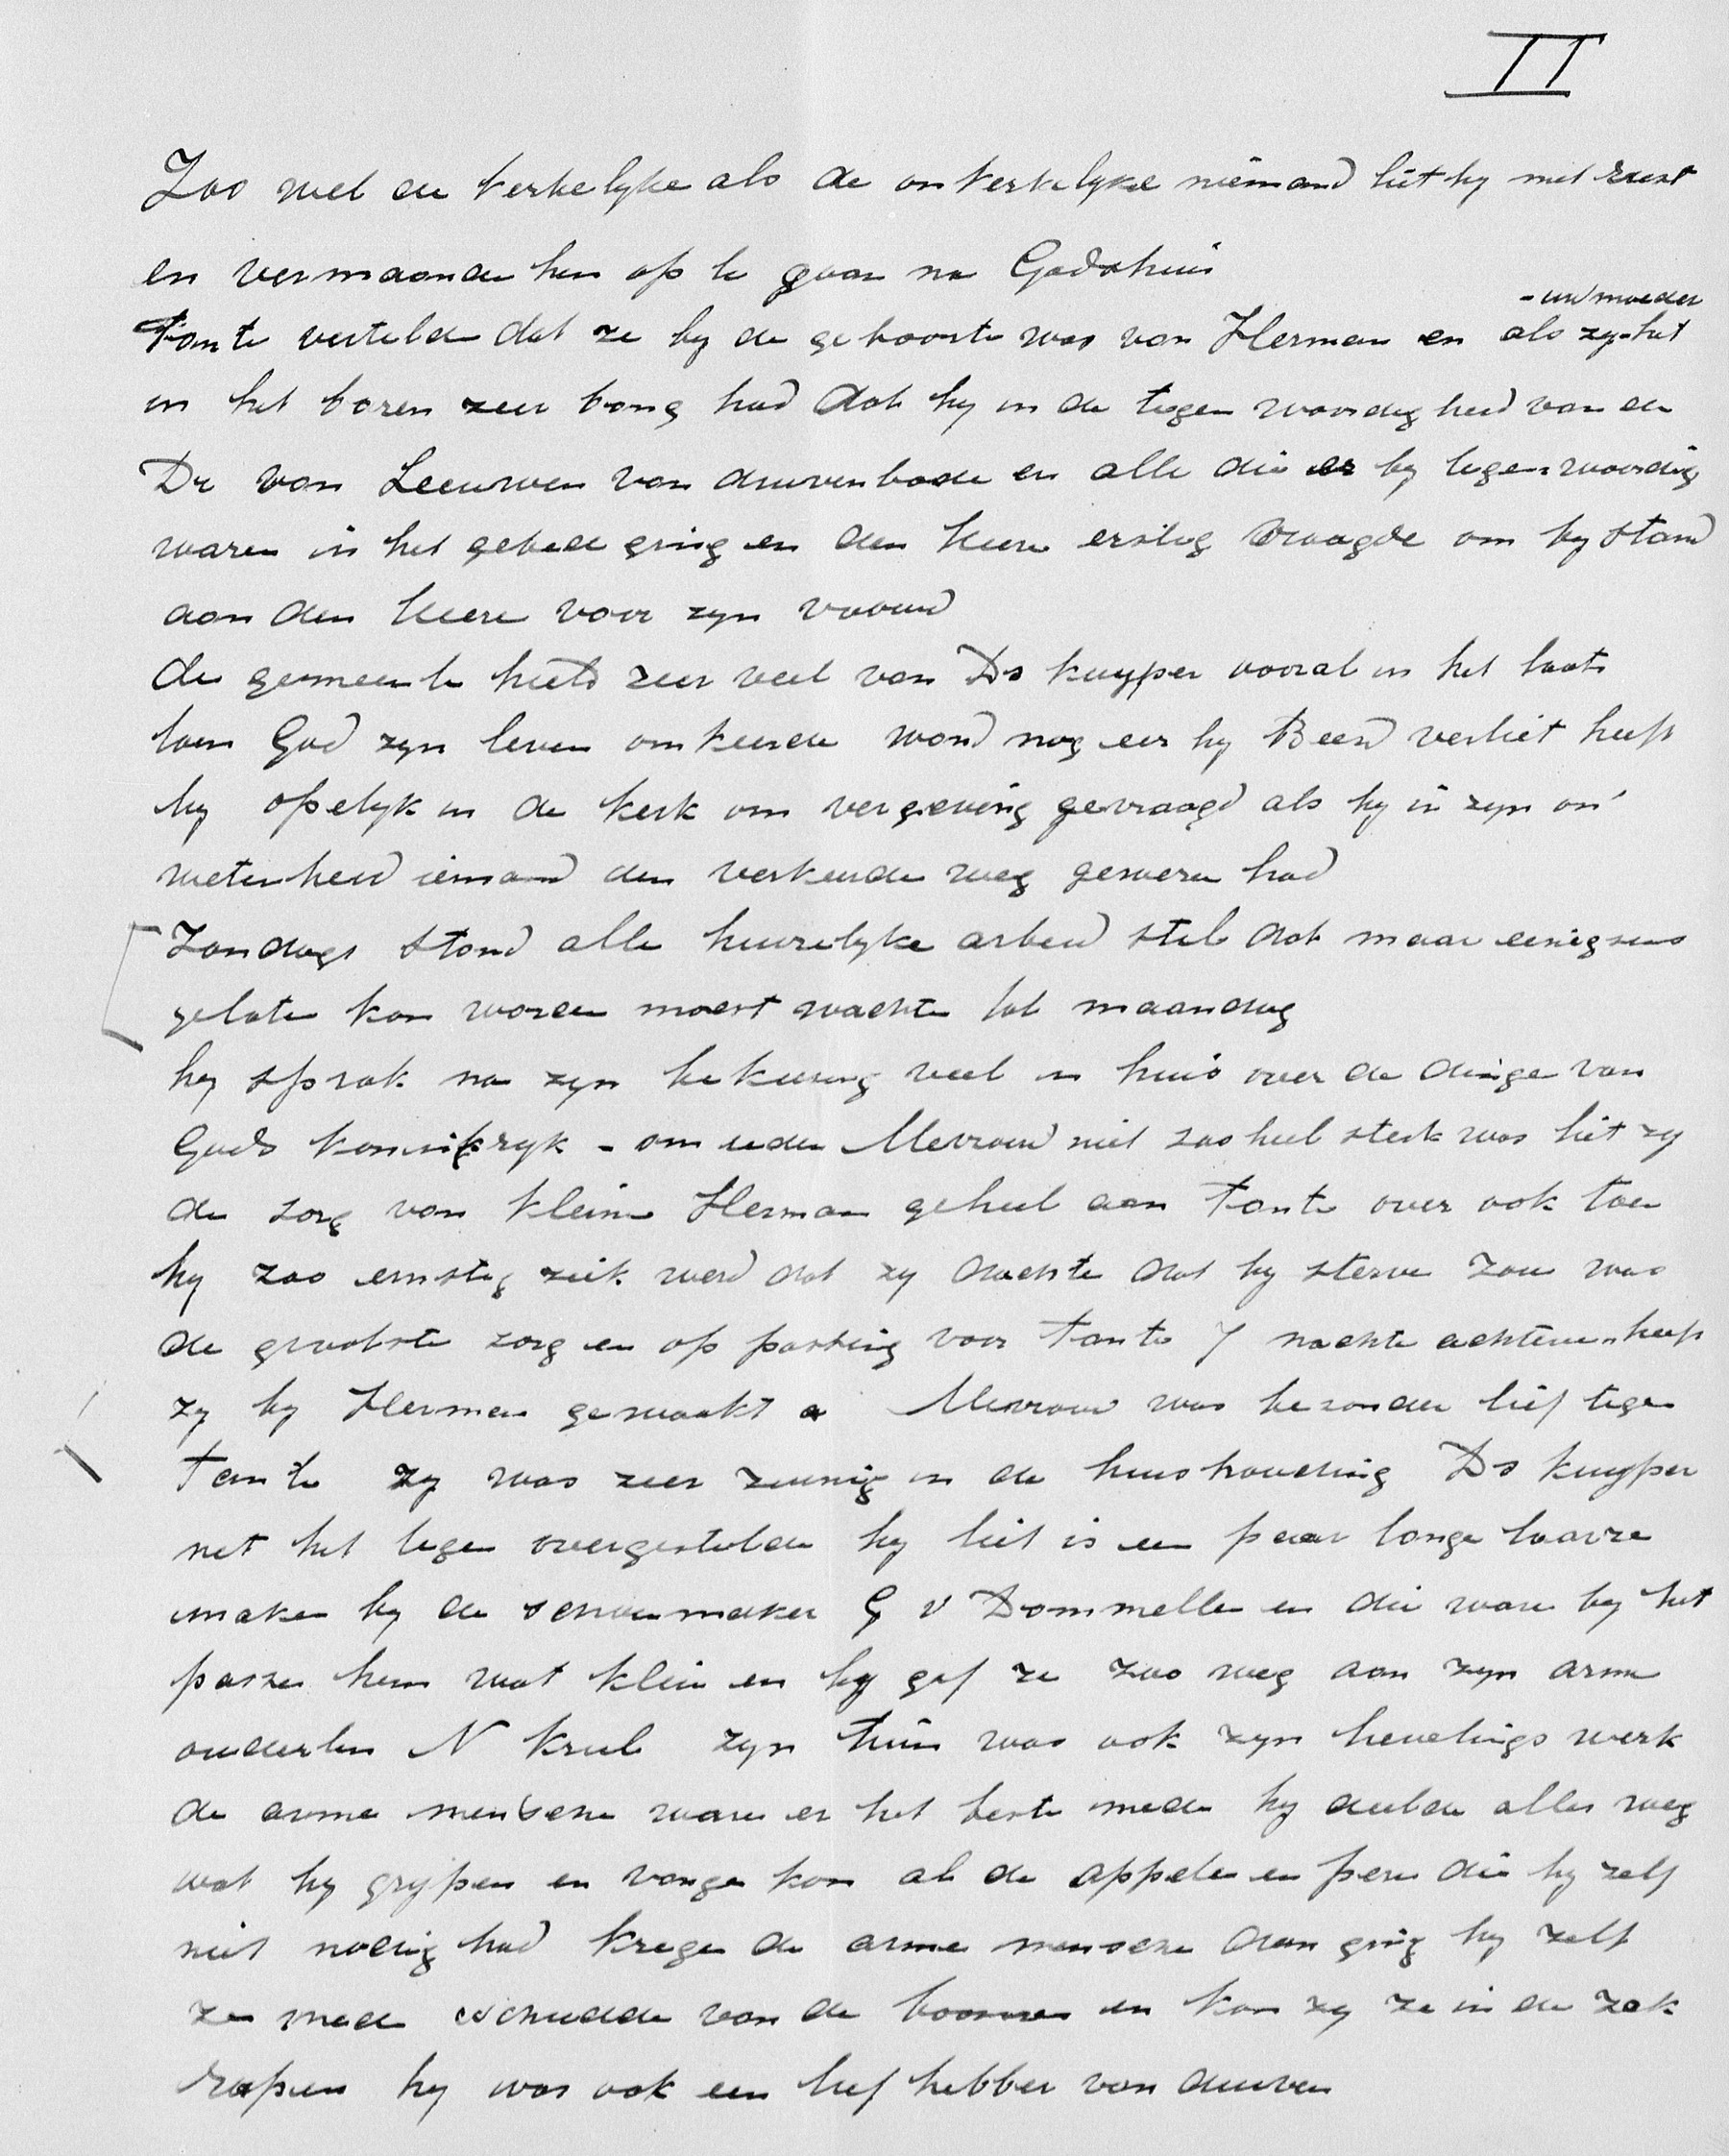 II
Zoo wel de kerkelyke als de onkerkelyke niemand liet hy met rust
en vermaande hen op te gaan na Godshuis
- uw moeder
Tante vertelde dat ze by de geboorte was van Herman en als zy het
in het baren zeer bang had dat hy in de tegen woordigheid van de
Dr van Leeuwen van duivenbode en alle die er by tegenwoordig
waren in het gebede ging en den Heere erstig vraagde om by stand
aan den Heere voor zyn vrouw
de gemeente hield zeer veel van Ds kuyper vooral in het laats
toen God zyn leven omkeerde word nog eer hy Beesd verliet heeft
hy opelyk in de kerk om vergeving gevraagd als hy in zyn on
wetenheid iemand den verkeerde weg gewezen had
Zondags stond alle huiselyke arbeid stil dat maar eenigsens
gelate kon worden moest wachte tot maandag
hy sprak na zyn bekeering veel in huis over de dinge van
Gods koninkryk - om reden Mevrouw niet zoo heel sterk was liet zy
de zorg van kleine Herman geheel aan Tante over ook toen
hy zoo ernstig ziek werd dat zy dachte dat hy sterve zou was
de grootste zorg en op passing voor Tante 7 nachte achtereen heeft
zy by Herman gewaakt Mevrouw was bezonder lief tegen
Tante zy was zeer zuinig in de huishouding Ds kuyper
net het tegen overgestelde hy liet is een paar lange laarze
make by de schoenmaker G v Dommelle en die ware by het
passe hem wat klein en hy gaf ze zoo weg aan zyn arme
ouderlin N Krul zyn tuin was ook zyn lievelings werk
de arme mensene ware er het beste mede hy deelde alles weg
wat hy grypen en vange kon al de appele en pere die hy zelf
niet nodig had krege de arme mensche dan ging hy zelf
ze mede schudde van de boomen en kon zy ze in de zak
rapen hy was ook een lief hebber van duiven